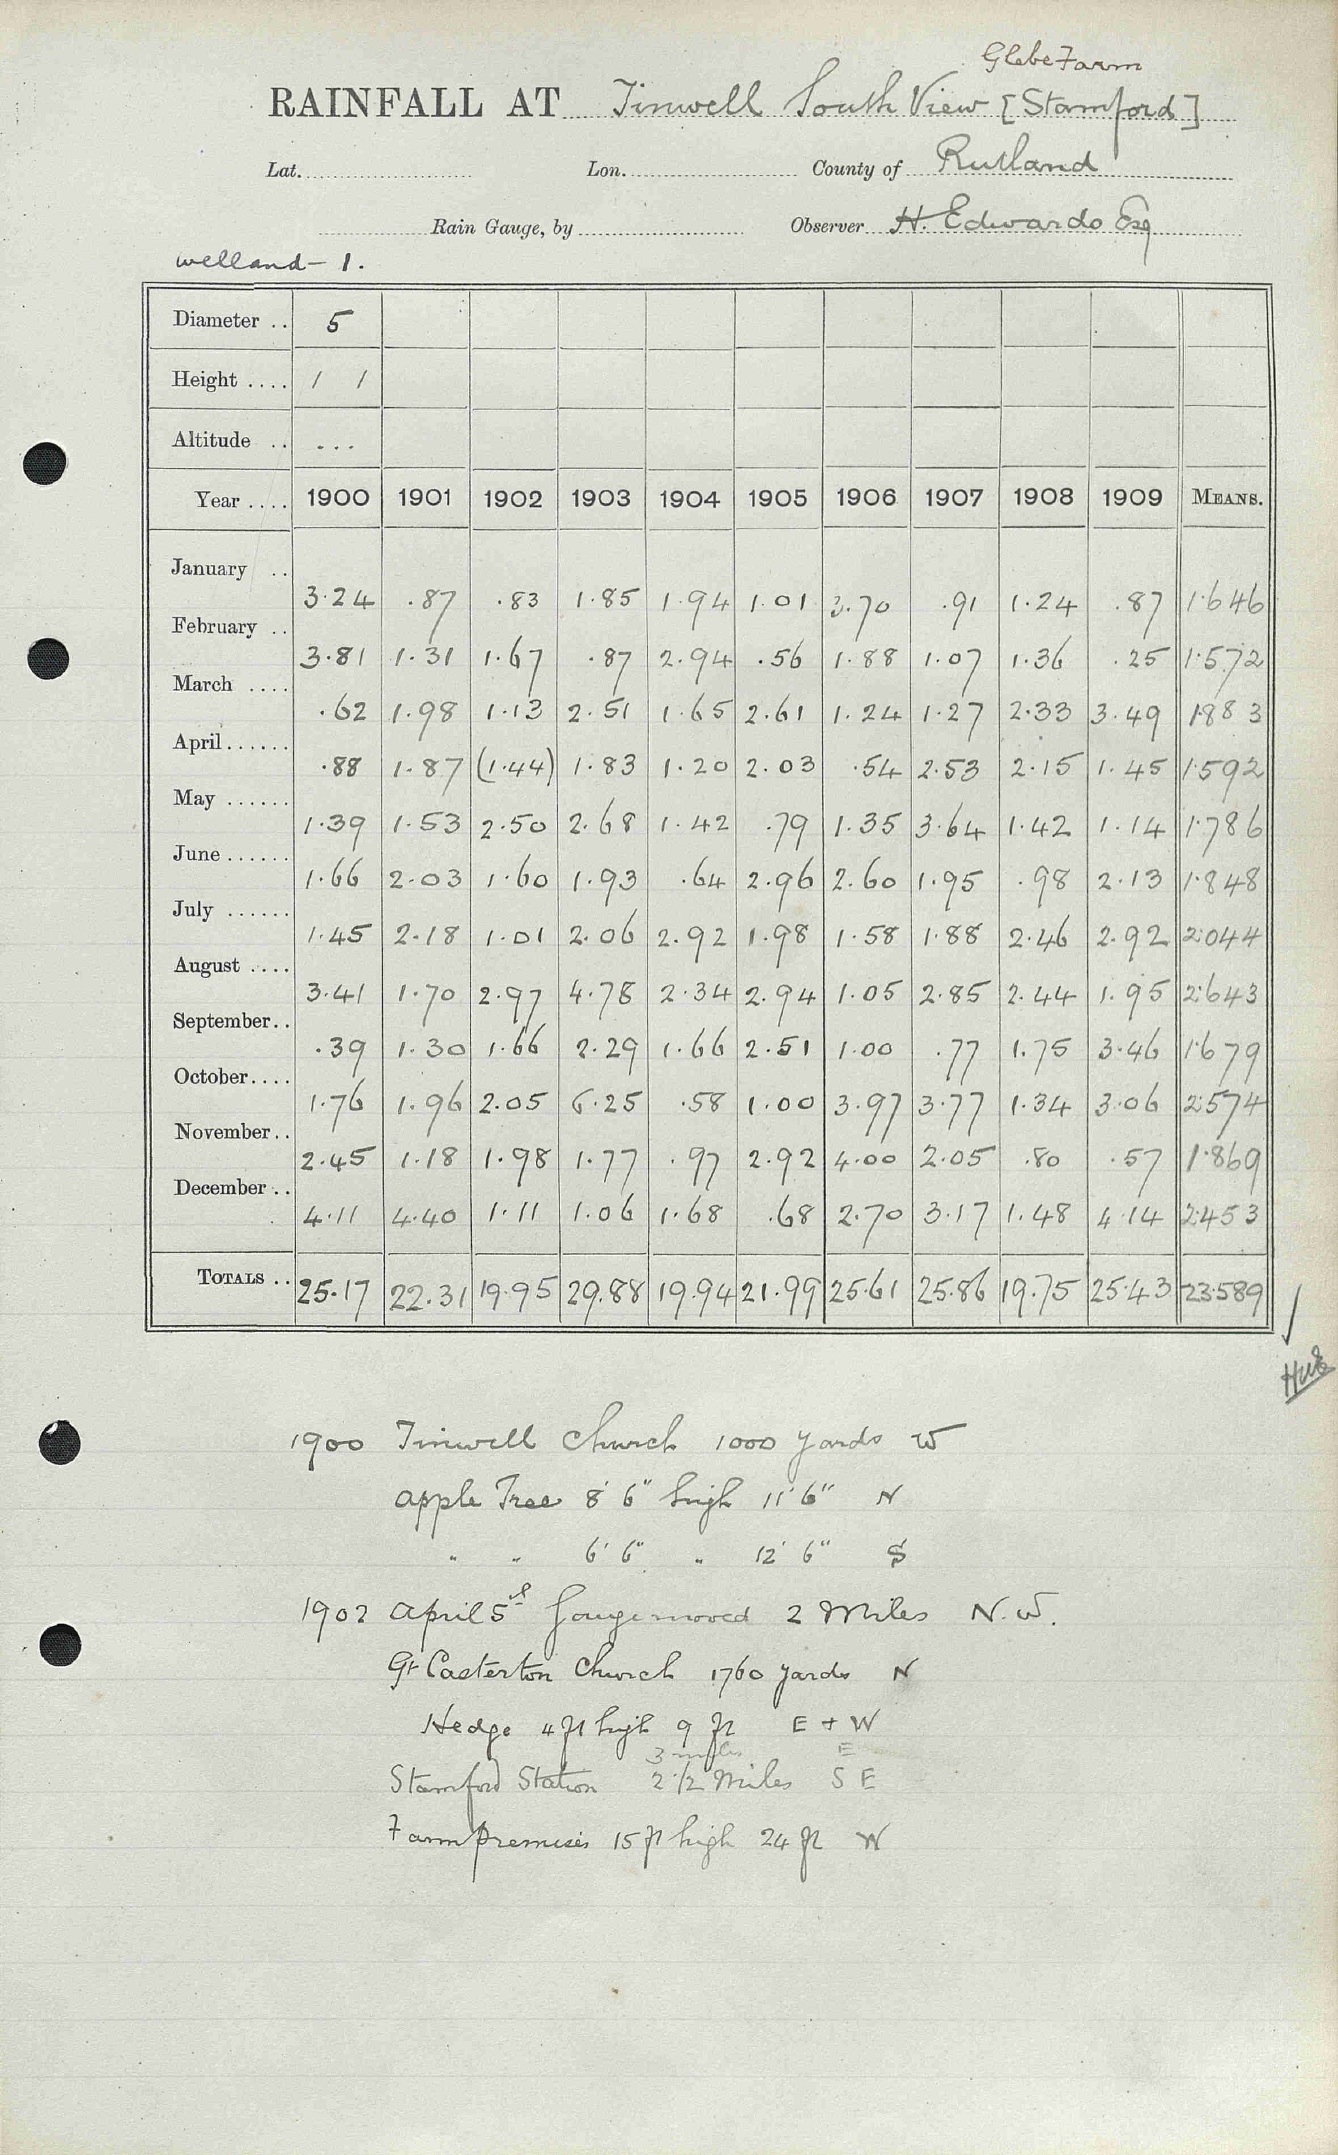 Glebe Farm
RAINFALL AT Tinwell South View [Stamford]
Lat. Lon. County of Rutland
Rain Gauge, by Observer H. Edwards Esq
Welland - 1.
Diameter .. 5
Height .... 1 1
Altitude .. ...
Year .... 1900 1901 1902 1903 1904 1905 1906 1907 1908 1909 MEANS.
January .. 3.24 .87 .83 1.85 1.94 1.01 3.70 .91 1.24 .87 1.646
February .. 3.81 1.31 1.67 .87 2.94 .56 1.88 1.07 1.36 .25 1.572
March .... .62 1.98 1.13 2.51 1.65 2.61 1.24 1.27 2.33 3.49 1.883
April...... .88 1.87 (1.44) 1.83 1.20 2.03 .54 2.53 2.15 1.45 1.592
May ...... 1.39 1.53 2.50 2.68 1.42 .79 1.35 3.64 1.42 1.14 1.786
June ...... 1.66 2.03 1.60 1.93 .64 2.96 2.60 1.95 .98 2.13 1.848
July ...... 1.45 2.18 1.01 2.06 2.92 1.98 1.58 1.88 2.46 2.92 2.044
August .... 3.41 1.70 2.97 4.78 2.34 2.94 1.05 2.85 2.44 1.95 2.643
September.. .39 1.30 1.66 2.29 1.66 2.51 1.00 .77 1.75 3.46 1.679
October.... 1.76 1.96 2.05 6.25 .58 1.00 3.97 3.77 1.34 3.06 2.574
November.. 2.45 1.18 1.98 1.77 .97 2.92 4.00 2.05 .80 .57 1.869
December .. 4.11 4.40 1.11 1.06 1.68 .68 2.70 3.17 1.48 4.14 2.453
TOTALS .. 25.17 22.31 19.95 29.88 19.94 21.99 25.61 25.86 19.75 25.43 23.589
1900 Tinwell Church 1000 yards W
apple Tree 8' 6" high 11' 6" N
" " 6' 6" " 12' 6" S
1902 April 5th Gauge moved 2 Miles N.W.
Gt Casterton Church 1760 yards N
Hedge 4 ft high 9 ft E + W
3 miles E
Stamford Station 2 1/2 Miles S E
Farm premises 15 ft high 24 ft W